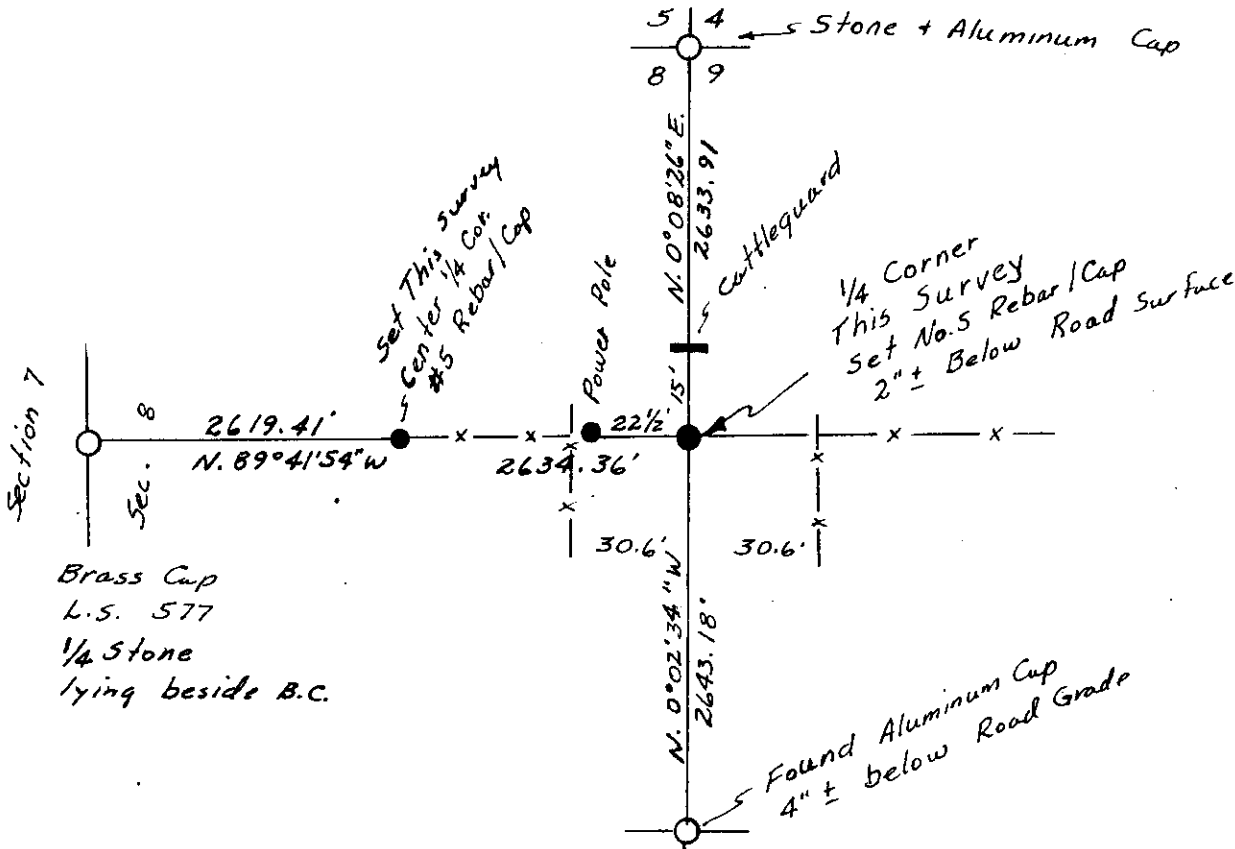 5 4
Stone + Aluminum Cap
8 9
N. 0°08'26" E.
2633.91
Cattleguard
Set This Survey
Center 1/4 Cor.
#5 Rebar/Cap
Power Pole
1/4 Corner
This Survey
Set No.5 Rebar/Cap
2"± Below Road Surface
15'
22½'
Section 7
Sec. 8
2619.41'
N. 89°41'54"W
2634.36'
x x x x x x x x
30.6'
30.6'
Brass Cap
L.S. 577
1/4 Stone
lying beside B.C.
N. 0°02'34"W
2643.18'
Found Aluminum Cap
4"± below Road Grade